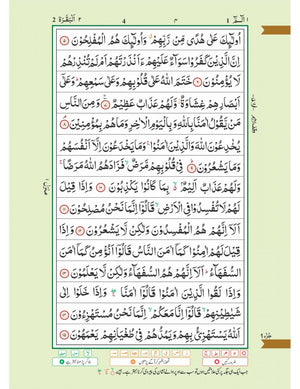 الٓمّٓ ١
4
٣
اَلْبَقَرَة ٢
اُولٰٓئِكَ عَلٰى هُدًى مِّنْ رَّبِّهِمْ ۗ وَاُولٰٓئِكَ هُمُ الْمُفْلِحُوْنَ ۝٥
اِنَّ الَّذِيْنَ كَفَرُوْا سَوَآءٌ عَلَيْهِمْ ءَاَنْذَرْتَهُمْ اَمْ لَمْ تُنْذِرْهُمْ
لَا يُؤْمِنُوْنَ ۝٦ خَتَمَ اللّٰهُ عَلٰى قُلُوْبِهِمْ وَعَلٰى سَمْعِهِمْ ؕ وَعَلٰٓى
اَبْصَارِهِمْ غِشَاوَةٌ ؗ وَّلَهُمْ عَذَابٌ عَظِيْمٌ ۝٧ وَمِنَ النَّاسِ
مَنْ يَّقُوْلُ اٰمَنَّا بِاللّٰهِ وَبِالْيَوْمِ الْاٰخِرِ وَمَا هُمْ بِمُؤْمِنِيْنَ ۝٨
يُخٰدِعُوْنَ اللّٰهَ وَالَّذِيْنَ اٰمَنُوْا ۚ وَمَا يَخْدَعُوْنَ اِلَّآ اَنْفُسَهُمْ
وَمَا يَشْعُرُوْنَ ۝٩ فِيْ قُلُوْبِهِمْ مَّرَضٌ ۙ فَزَادَهُمُ اللّٰهُ مَرَضًا ۚ
وَلَهُمْ عَذَابٌ اَلِيْمٌۢ ۙ بِمَا كَانُوْا يَكْذِبُوْنَ ۝١٠ وَاِذَا قِيْلَ
لَهُمْ لَا تُفْسِدُوْا فِي الْاَرْضِ ۙ قَالُوْٓا اِنَّمَا نَحْنُ مُصْلِحُوْنَ ۝١١
اَلَآ اِنَّهُمْ هُمُ الْمُفْسِدُوْنَ وَلٰكِنْ لَّا يَشْعُرُوْنَ ۝١٢ وَاِذَا
قِيْلَ لَهُمْ اٰمِنُوْا كَمَآ اٰمَنَ النَّاسُ قَالُوْٓا اَنُؤْمِنُ كَمَآ اٰمَنَ
السُّفَهَآءُ ؕ اَلَآ اِنَّهُمْ هُمُ السُّفَهَآءُ وَلٰكِنْ لَّا يَعْلَمُوْنَ ۝١٣
وَاِذَا لَقُوا الَّذِيْنَ اٰمَنُوْا قَالُوْٓا اٰمَنَّا ۚ وَاِذَا خَلَوْا اِلٰى
شَيٰطِيْنِهِمْ ۙ قَالُوْٓا اِنَّا مَعَكُمْ ۙ اِنَّمَا نَحْنُ مُسْتَهْزِءُوْنَ ۝١٤
اَللّٰهُ يَسْتَهْزِئُ بِهِمْ وَيَمُدُّهُمْ فِيْ طُغْيَانِهِمْ يَعْمَهُوْنَ ۝١٥